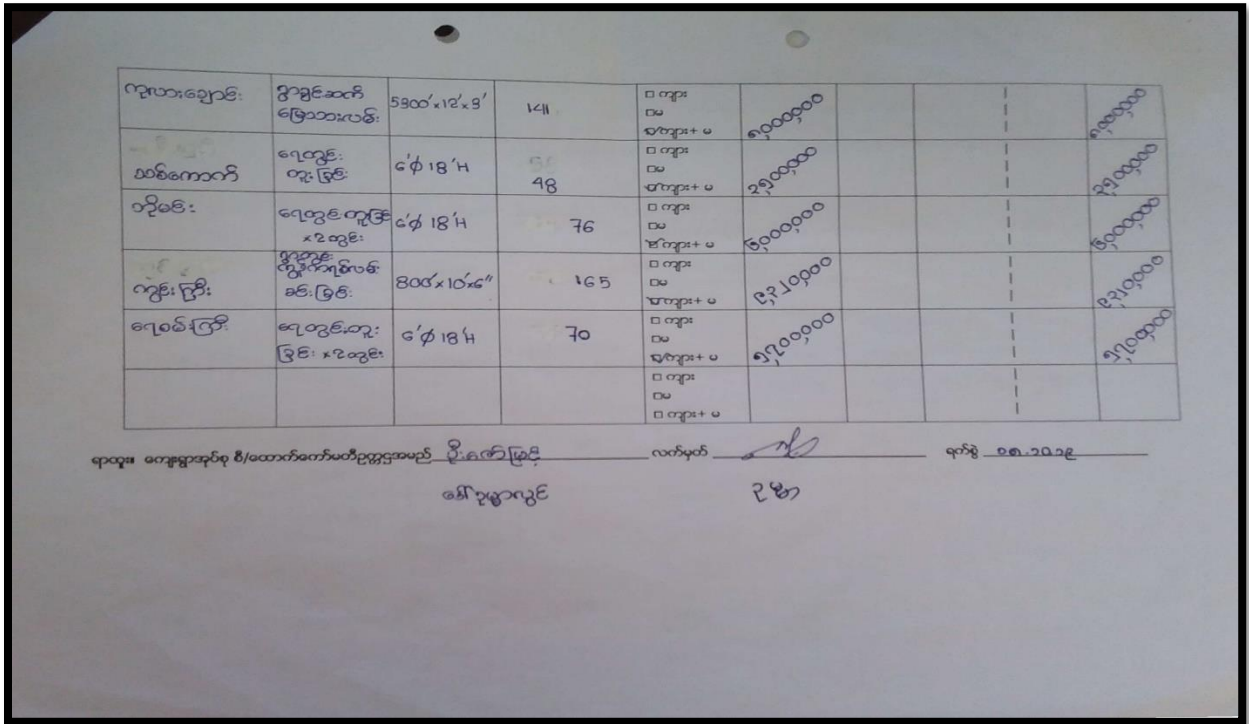 ကုလားချောင်း
ရွာချင်းဆက်
မြေသားလမ်း
5900'x12'x3'
1411
□ ကျား
□မ
ကျား+ မ
၈,၀၀၀၀၀၀
၈,၀၀၀၀၀၀
သစ်ကောက်
ရေတွင်း
တူးခြင်း
6'φ 18'H
48
□ ကျား
□မ
ကျား+ မ
၂,၅၀၀၀၀၀
၂,၅၀၀၀၀၀
ဘိုမင်း
ရေတွင်းတူးခြင်း
x2တွင်း
6'φ 18'H
76
□ ကျား
□မ
ကျား+ မ
၆,၀၀၀၀၀၀
၆,၀၀၀၀၀၀
ကွင်းကြီး
ရွာတွင်း
ကွန်ကရစ်လမ်း
ခင်းခြင်း
800'x10'x6"
165
□ ကျား
□မ
ကျား+ မ
၉,၃၂၀,၀၀၀
၉,၃၂၀,၀၀၀
ရေစမ်းကြီး
ရေတွင်းတူး
ခြင်း x2တွင်း
6'φ 18'H
70
□ ကျား
□မ
ကျား+ မ
၅,၇၀၀၀၀၀
၅,၇၀၀၀၀၀
□ ကျား
□မ
□ ကျား+ မ
ရာထူး။ ကျေးရွာအုပ်စု စီ/ထောက်ကော်မတီဥက္ကဋ္ဌအမည် ဦးဇော်မြင့် လက်မှတ် ရက်စွဲ
ဒေါ်ဥမ္မာလွင် ဥမ္မာ